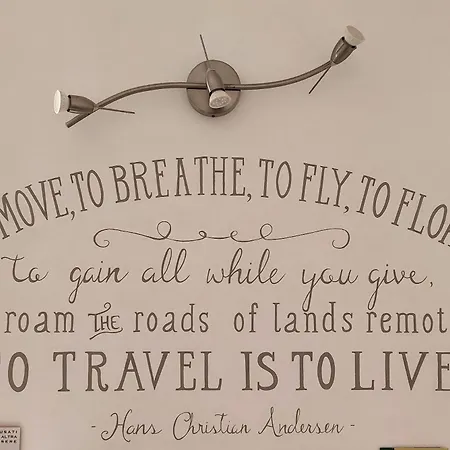 MOVE, TO BREATHE, TO FLY, TO FLO
to gain all while you give,
roam THE roads of lands remot
O TRAVEL IS TO LIVE
- Hans Christian Andersen -
USATI
ALTRA
SENE